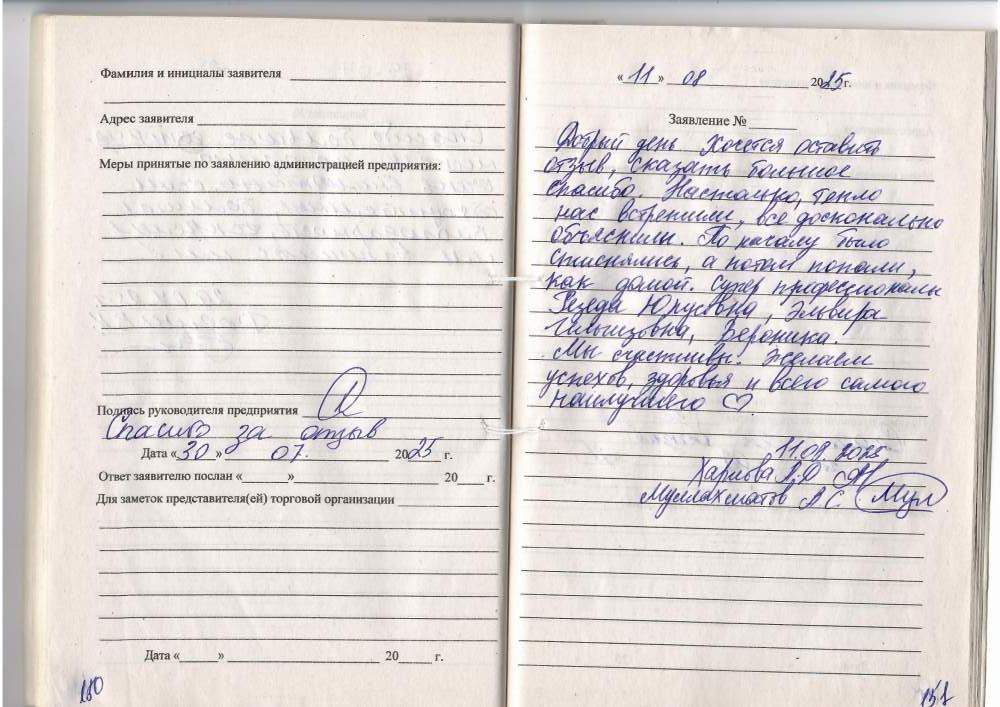 Фамилия и инициалы заявителя
Адрес заявителя
Меры принятые по заявлению администрацией предприятия:
Подпись руководителя предприятия
Спасибо за отзыв
Дата «30» 07. 2025 г.
Ответ заявителю послан «______» 20____ г.
Для заметок представителя(ей) торговой организации
Дата «_____» 20_____ г.
180
«11» 08 2025г.
Заявление №
Добрый день Хочется оставить
отзыв, сказать большое
спасибо. Настолько, тепло
нас встретили, все досконально
объяснили. По началу было
стеснялись, а потом попали,
как домой. Супер профессионалы
Резеда Юнусовна, Эльвира
Гильмизовна, Вероника.
Мы счастливы. Желаем
успехов, здоровья и всего самого
наилучшего ♡
11.08.2025
А.Д
Муллахматов А.С. Мул